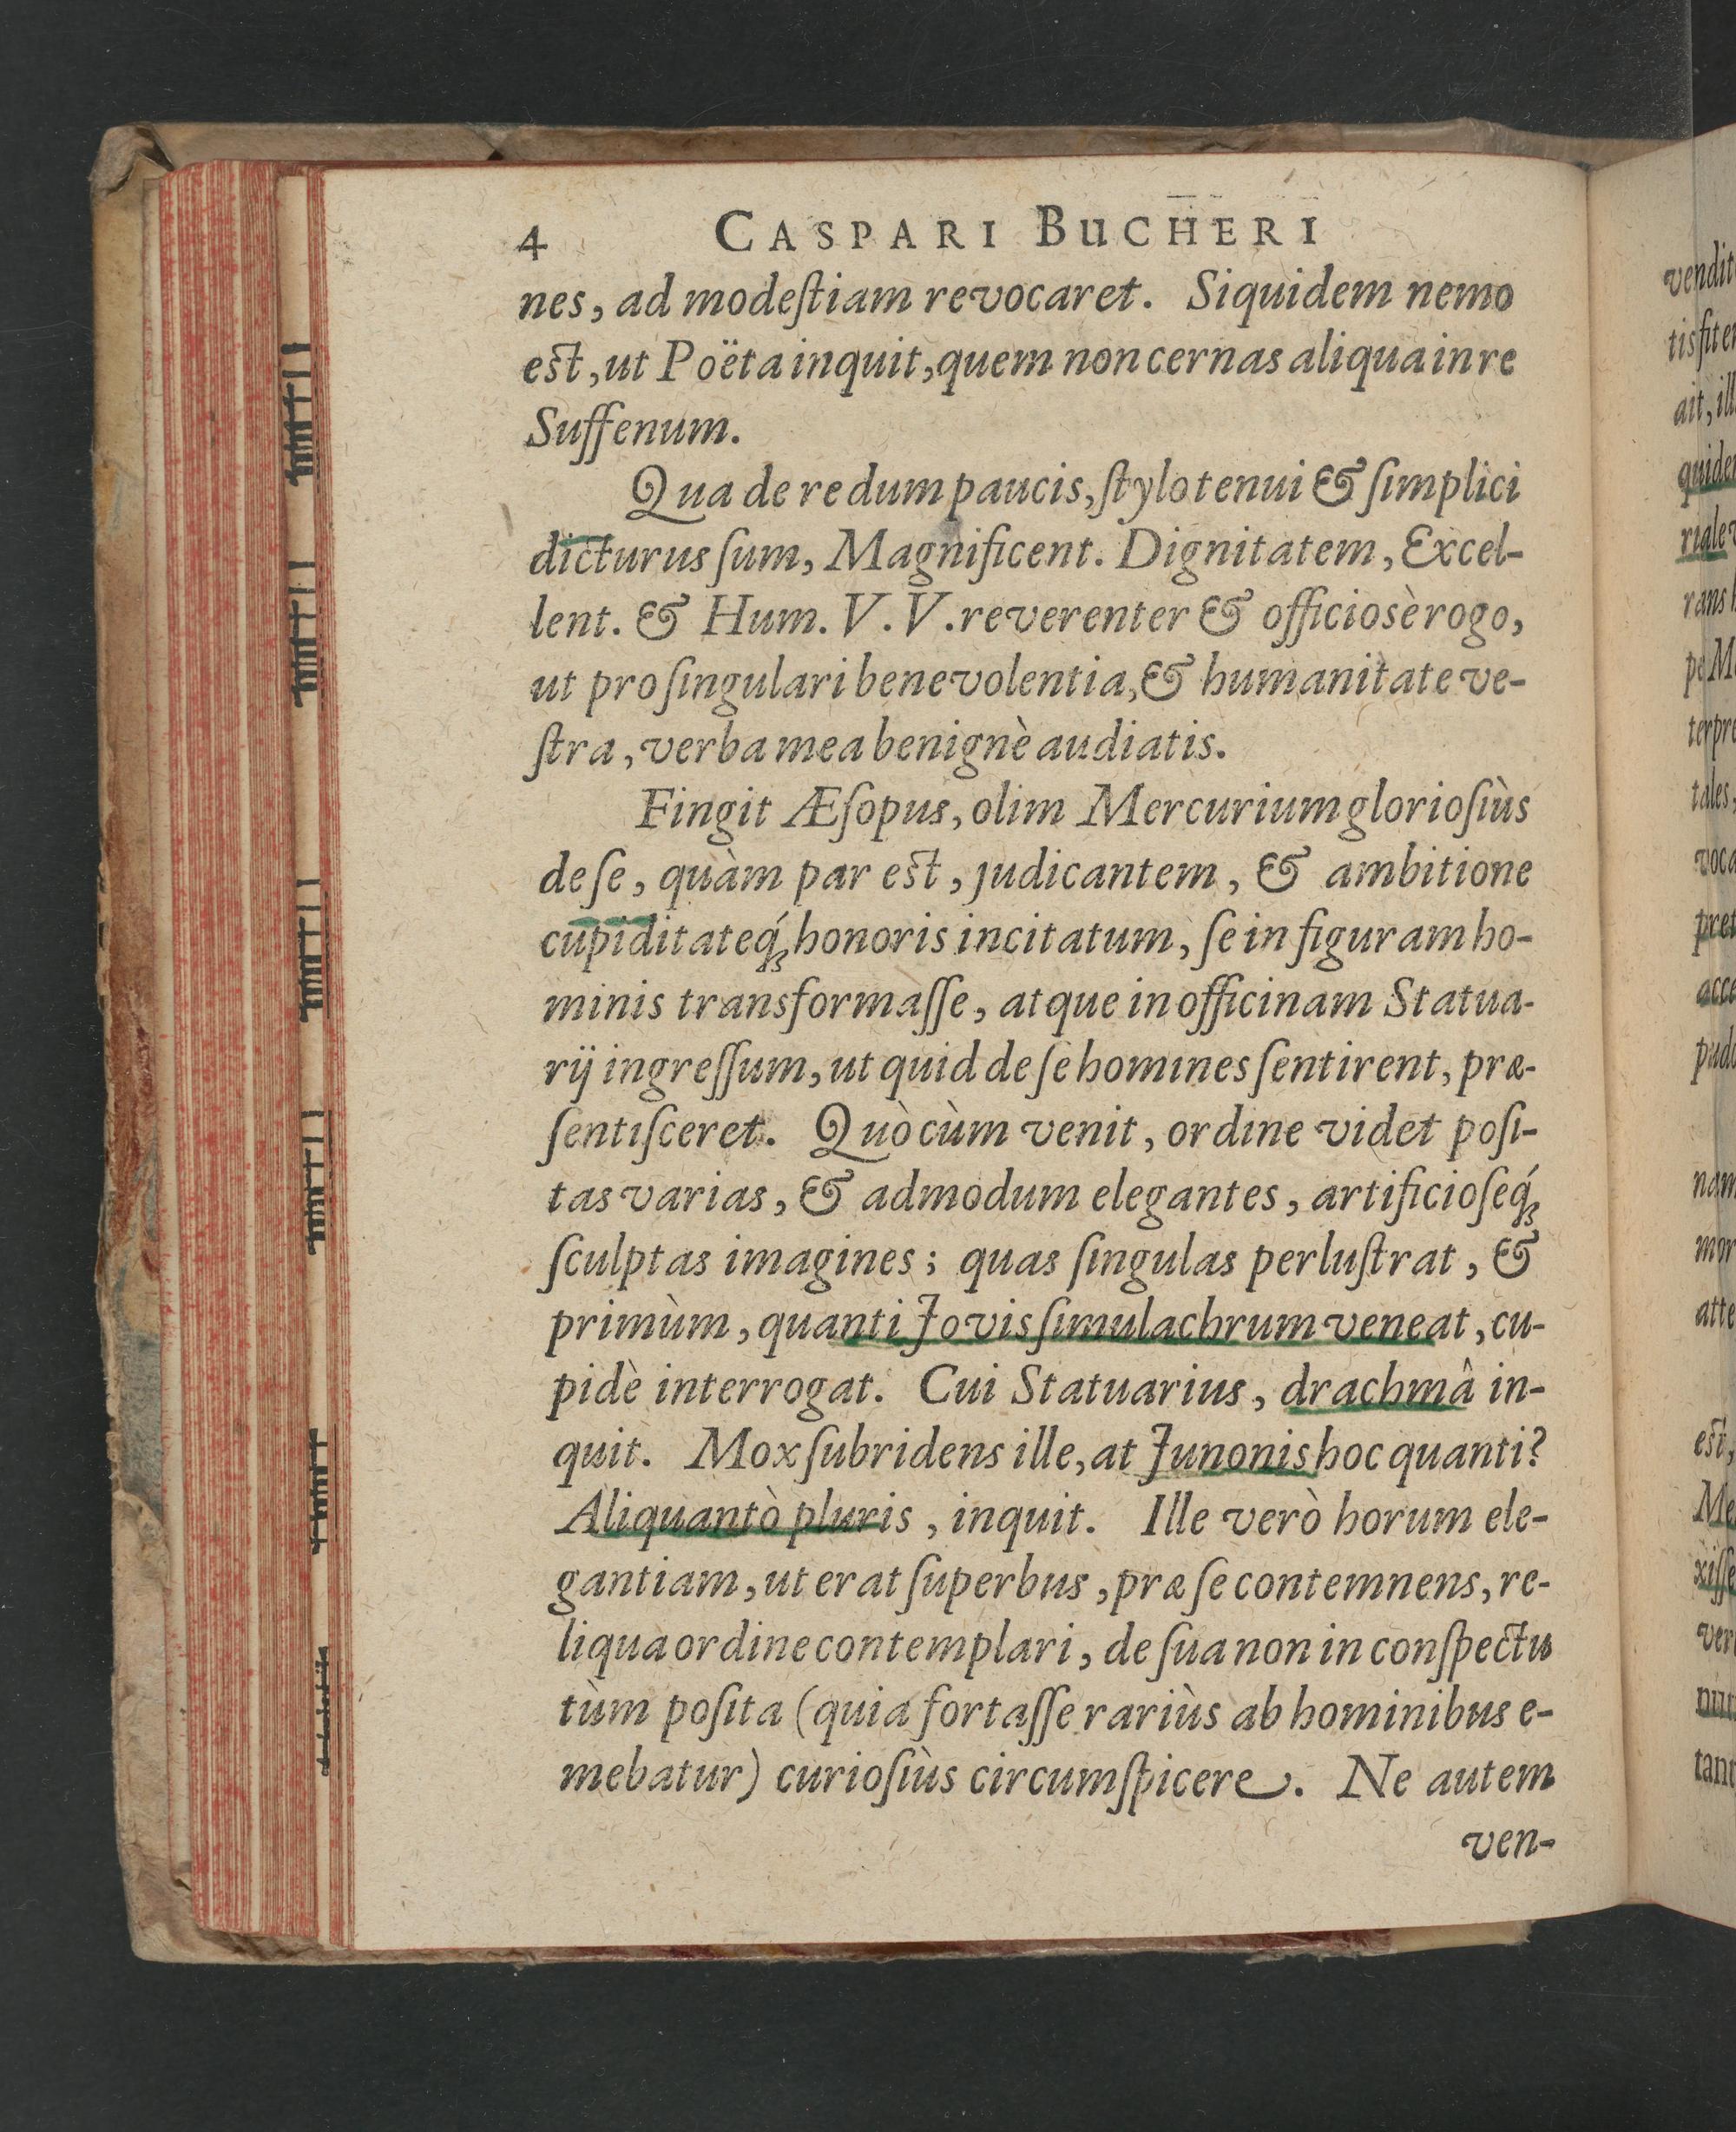 4 CASPARI BUCHERI
nes, ad modeſtiam revocaret. Siquidem nemo
eſt, ut Poëta inquit, quem non cernas aliqua in re
Suffenum.
Qua de re dum paucis, ſtylo tenui & ſimplici
dicturus ſum, Magnificent. Dignitatem, Excel-
lent. & Hum. V. V. reverenter & officiosè rogo,
ut pro ſingulari benevolentia, & humanitate ve-
ſtra, verba mea benignè audiatis.
Fingit Æſopus, olim Mercurium glorioſiùs
de ſe, quàm par eſt, judicantem, & ambitione
cupiditateq́ꝫ honoris incitatum, ſe in figuram ho-
minis transformaſſe, atque in officinam Statua-
rij ingreſſum, ut quid de ſe homines ſentirent, præ-
ſentiſceret. Quò cùm venit, ordine videt poſi-
tas varias, & admodum elegantes, artificioſeq́ꝫ
ſculptas imagines; quas ſingulas perluſtrat, &
primùm, quanti Jovis ſimulachrum veneat, cu-
pidè interrogat. Cui Statuarius, drachmâ in-
quit. Mox ſubridens ille, at Junonis hoc quanti?
Aliquantò pluris, inquit. Ille verò horum ele-
gantiam, ut erat ſuperbus, præ ſe contemnens, re-
liqua ordine contemplari, de ſua non in conſpectu
tùm poſita (quia fortaſſe rariùs ab hominibus e-
mebatur) curioſiùs circumſpicere. Ne autem
ven-